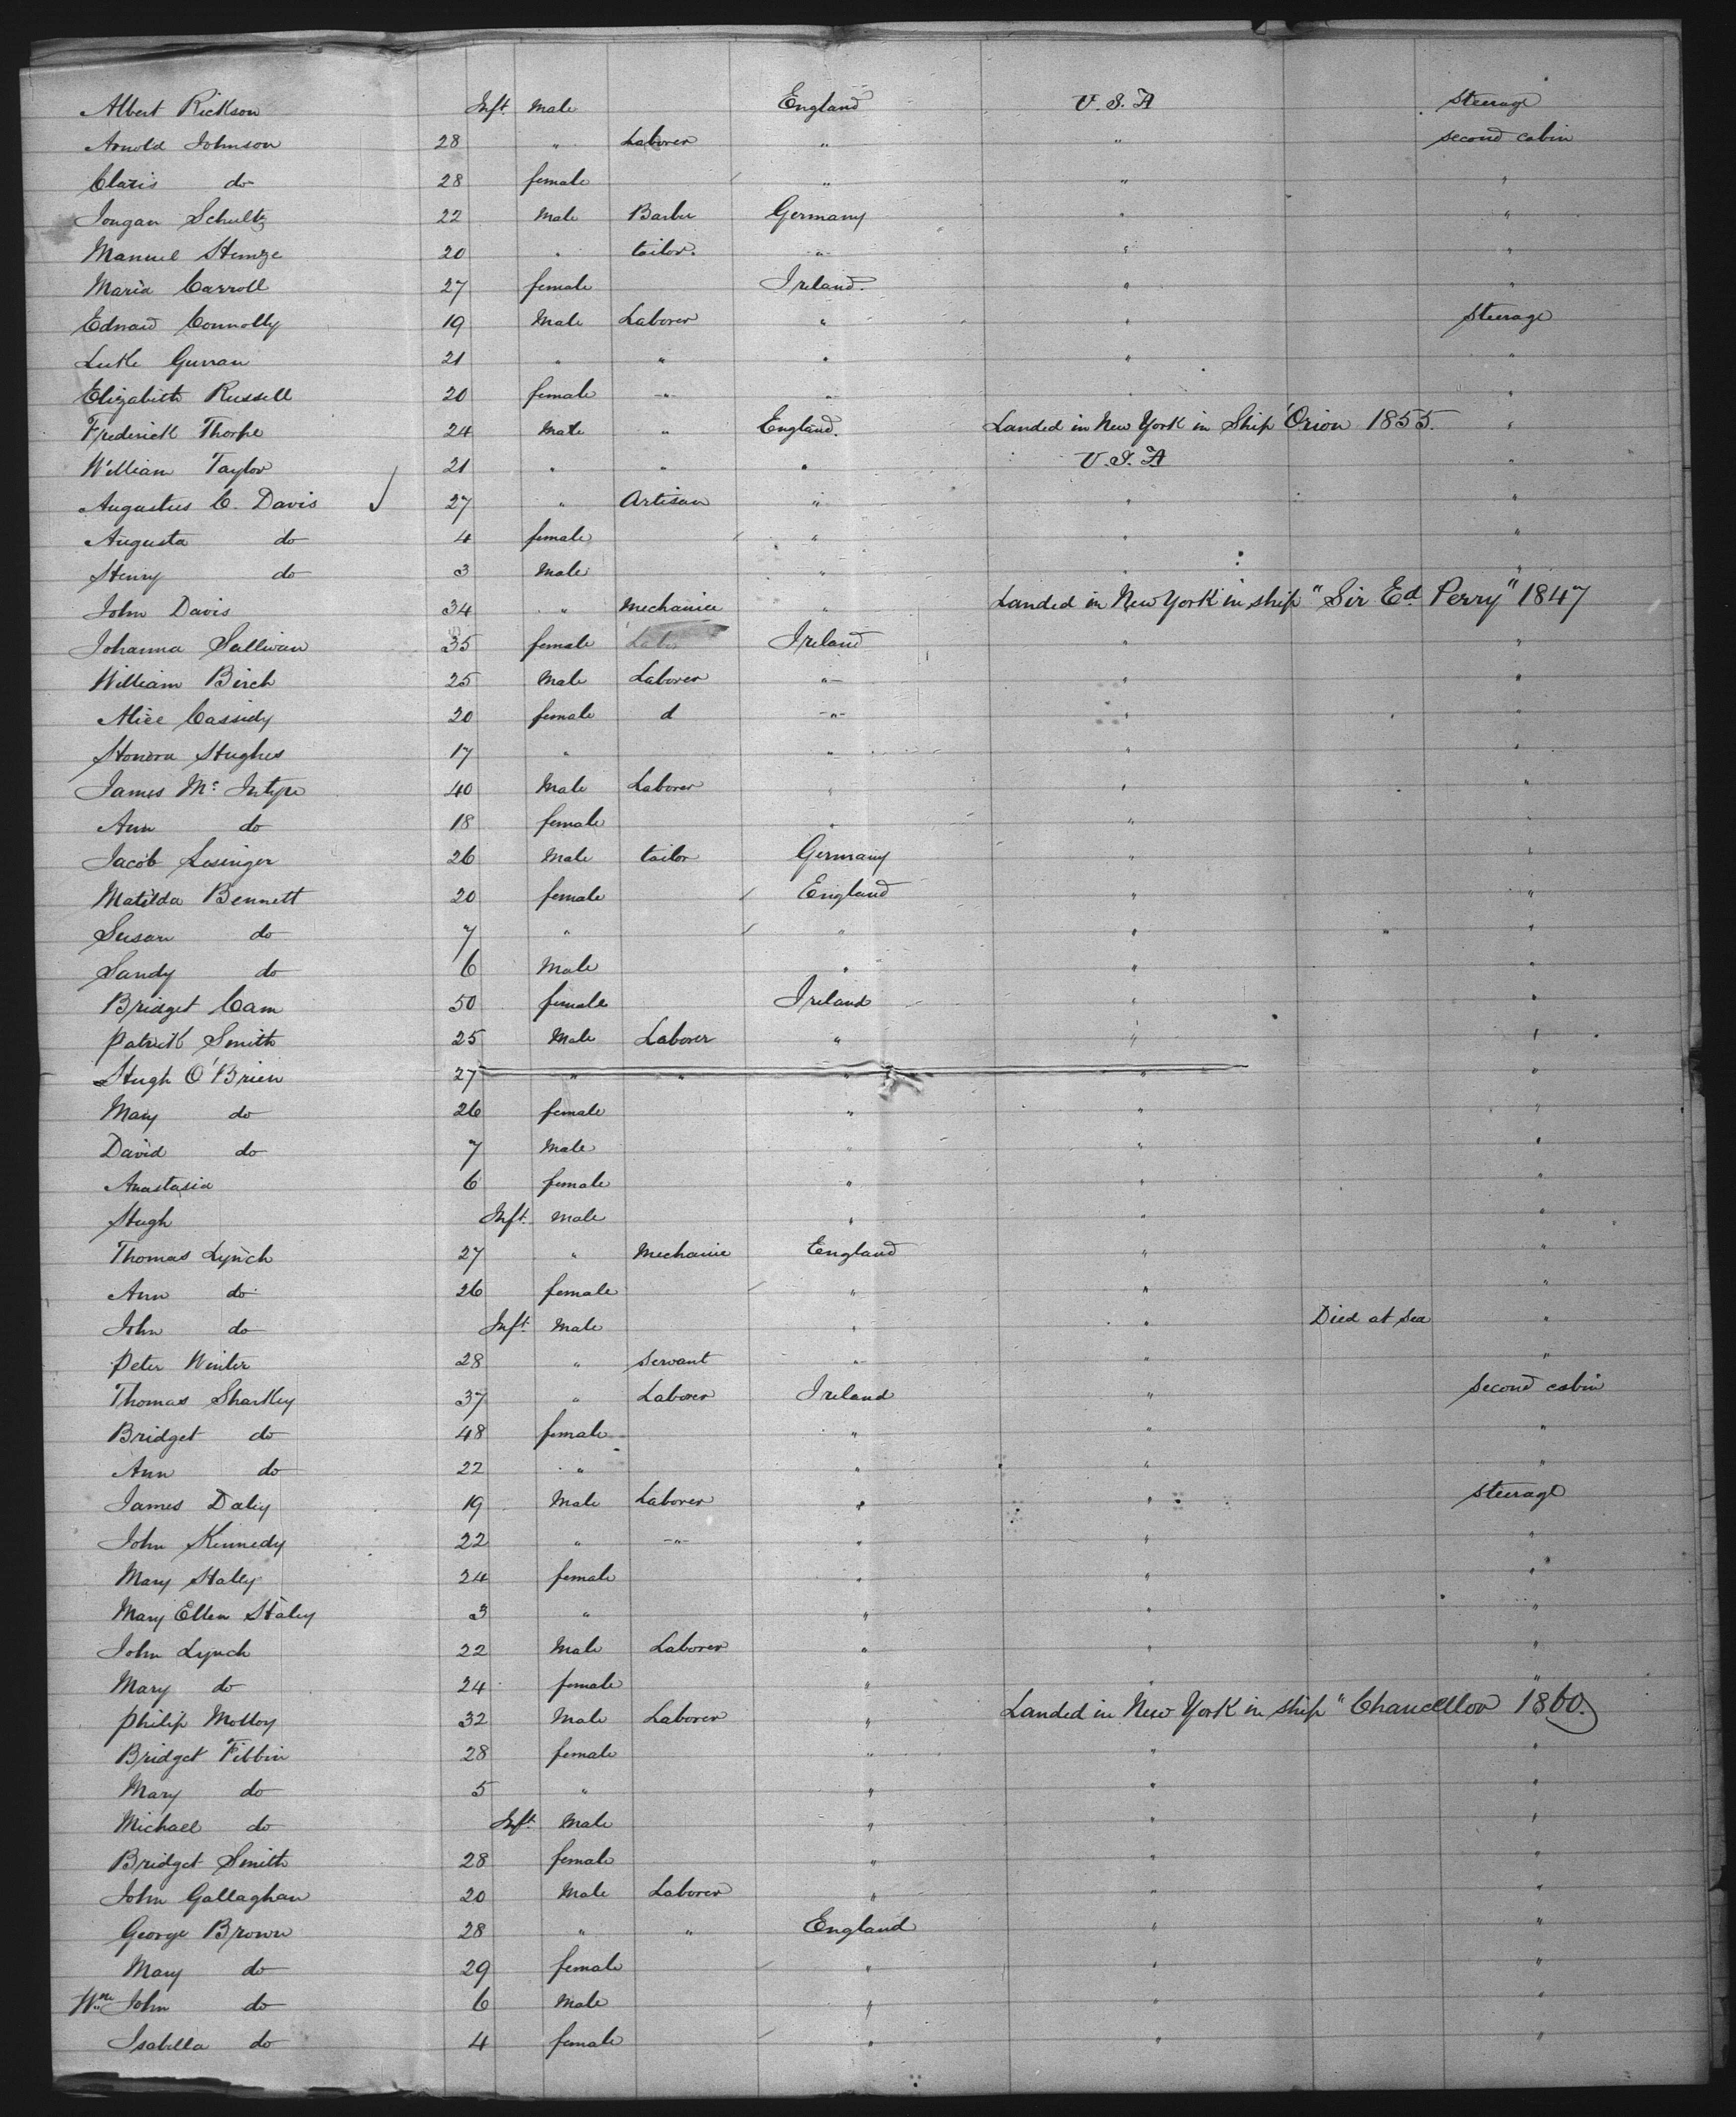 Albert Rickson Inft. Male England U.S.A steerage
Arnold Johnson 28 " Laborer " " second cabin
Claris do 28 female " " "
Jongan Schultz 22 Male Barber Germany " "
Manuel 20 " tailor. " " "
Maria Carroll 27 female Ireland. " "
Edward Connolly 19 Male Laborer " " steerage
Luke Gurran 21 " " " " "
Elizabeth Russell 20 female " " " "
Frederick Thorpe 24 Male " England. Landed in New York in Ship Orion 1855. "
William Taylor 21 " " " U.S.A "
Augustus C. Davis 27 " Artisan " " "
Augusta do 4 female " " "
Henry do 3 Male " " "
John Davis 34 " Mechanic " Landed in New York in ship "Sir Ed. Perry" 1847
Johanna Sullivan 35 female Labor Ireland " "
William Birch 25 Male Laborer " " "
Alice Cassidy 20 female d " " "
Honora Hughes 17 " " " "
James Mc Intyre 40 Male Laborer " " "
Ann do 18 female " " "
Jacob Lesinger 26 Male tailor Germany " "
Matilda Bennett 20 female England " "
Susan do 7 " " " "
Sandy do 6 Male " " "
Bridget Cam 50 female Ireland " "
Patrick Smith 25 Male Laborer " " "
Hugh O'Brien 27 " " " " "
Mary do 26 female " " "
David do 7 Male " " "
Anastasia 6 female " " "
Hugh Inft. Male " " "
Thomas Lynch 27 " Mechanic England " "
Ann do 26 female " " "
John do Inft. Male " " Died at Sea "
Peter Winter 28 " servant " " "
Thomas Sharkey 37 " Laborer Ireland " second cabin
Bridget do 48 female " " "
Ann do 22 " " " "
James Daley 19 Male Laborer " " steerage
John Kennedy 22 " " " " "
Mary Haley 24 female " " "
Mary Ellen Haley 3 " " " "
John Lynch 22 Male Laborer " " "
Mary do 24 female " " "
Philip Molloy 32 Male Laborer " Landed in New York in ship "Chancellor 1860.
Bridget Fibbin 28 female " " "
Mary do 5 " " " "
Michael do Inft. Male " " "
Bridget Smith 28 female " " "
John Gallaghan 20 Male Laborer " " "
George Brown 28 " " England " "
Mary do 29 female " " "
Wm. John do 6 Male " " "
Isabella do 4 female " " "